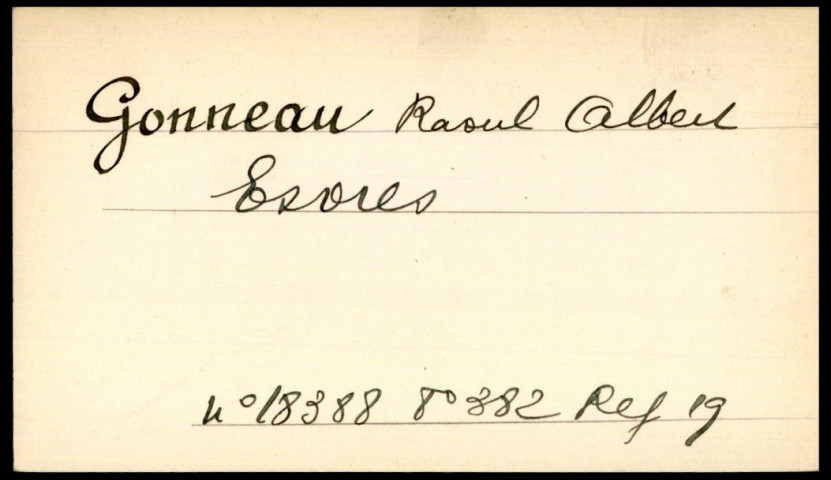 Gonneau Raoul Albert
Esvres
n° 18388 F° 382 Reg 19